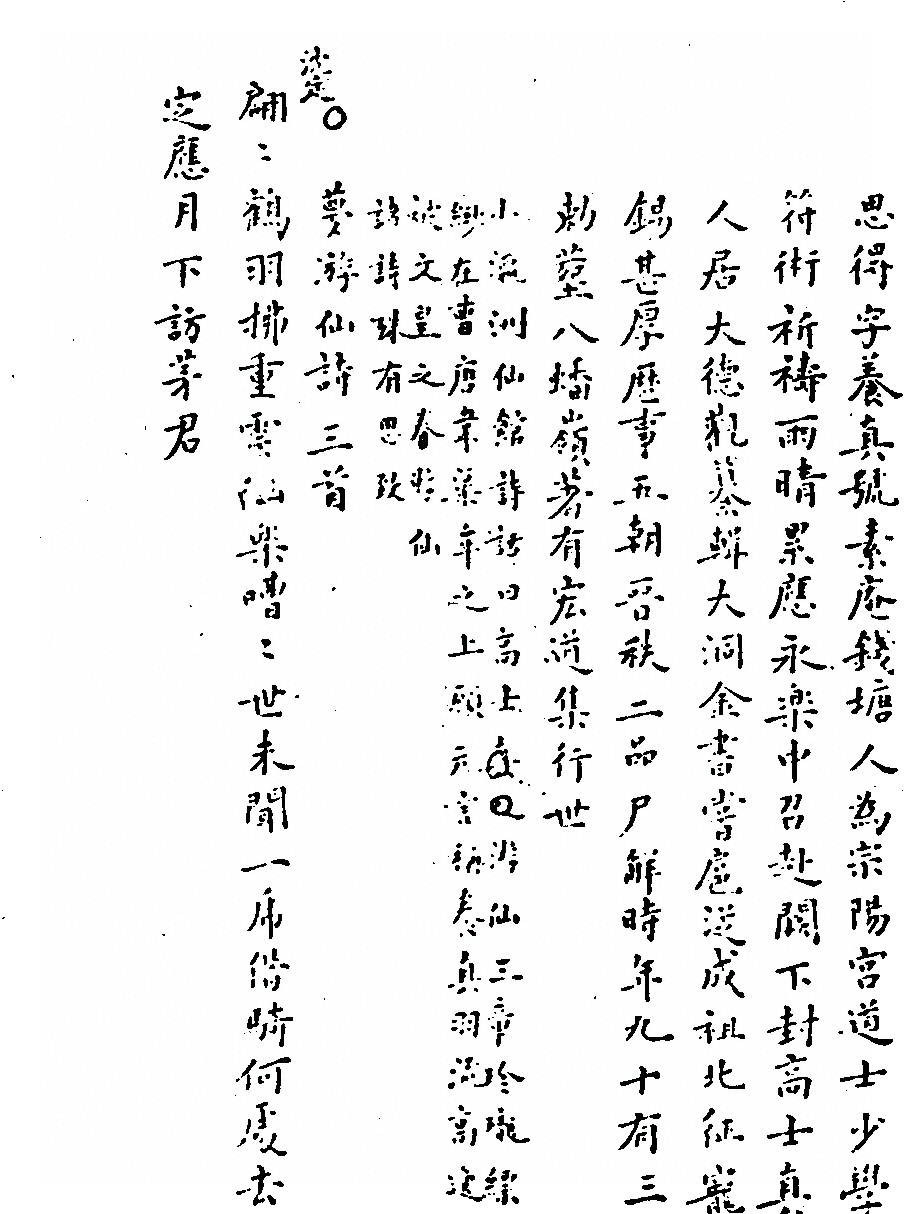 思得字養真號素庵錢塘人為宗陽宮道士少學
符術祈禱雨晴累應永樂中召赴闕下封高士真
人居大德觀纂輯大洞金書嘗扈從成祖北征寵
錫甚厚歷事五朝晉秩二品尸解時年九十有三
勅葬八蟠嶺著有宏道集行世
小瀛洲仙館詩話曰高士游仙三章玲瓏縹
緲在曹唐韋渠牟之上顧元言稱養真羽流高逸
被文皇之眷彩仙
詩詩殊有思致
夢游仙詩三首
翩〻鶴羽拂重雲仙樂嘈〻世未聞一席偕騎何處去
定應月下訪茅君